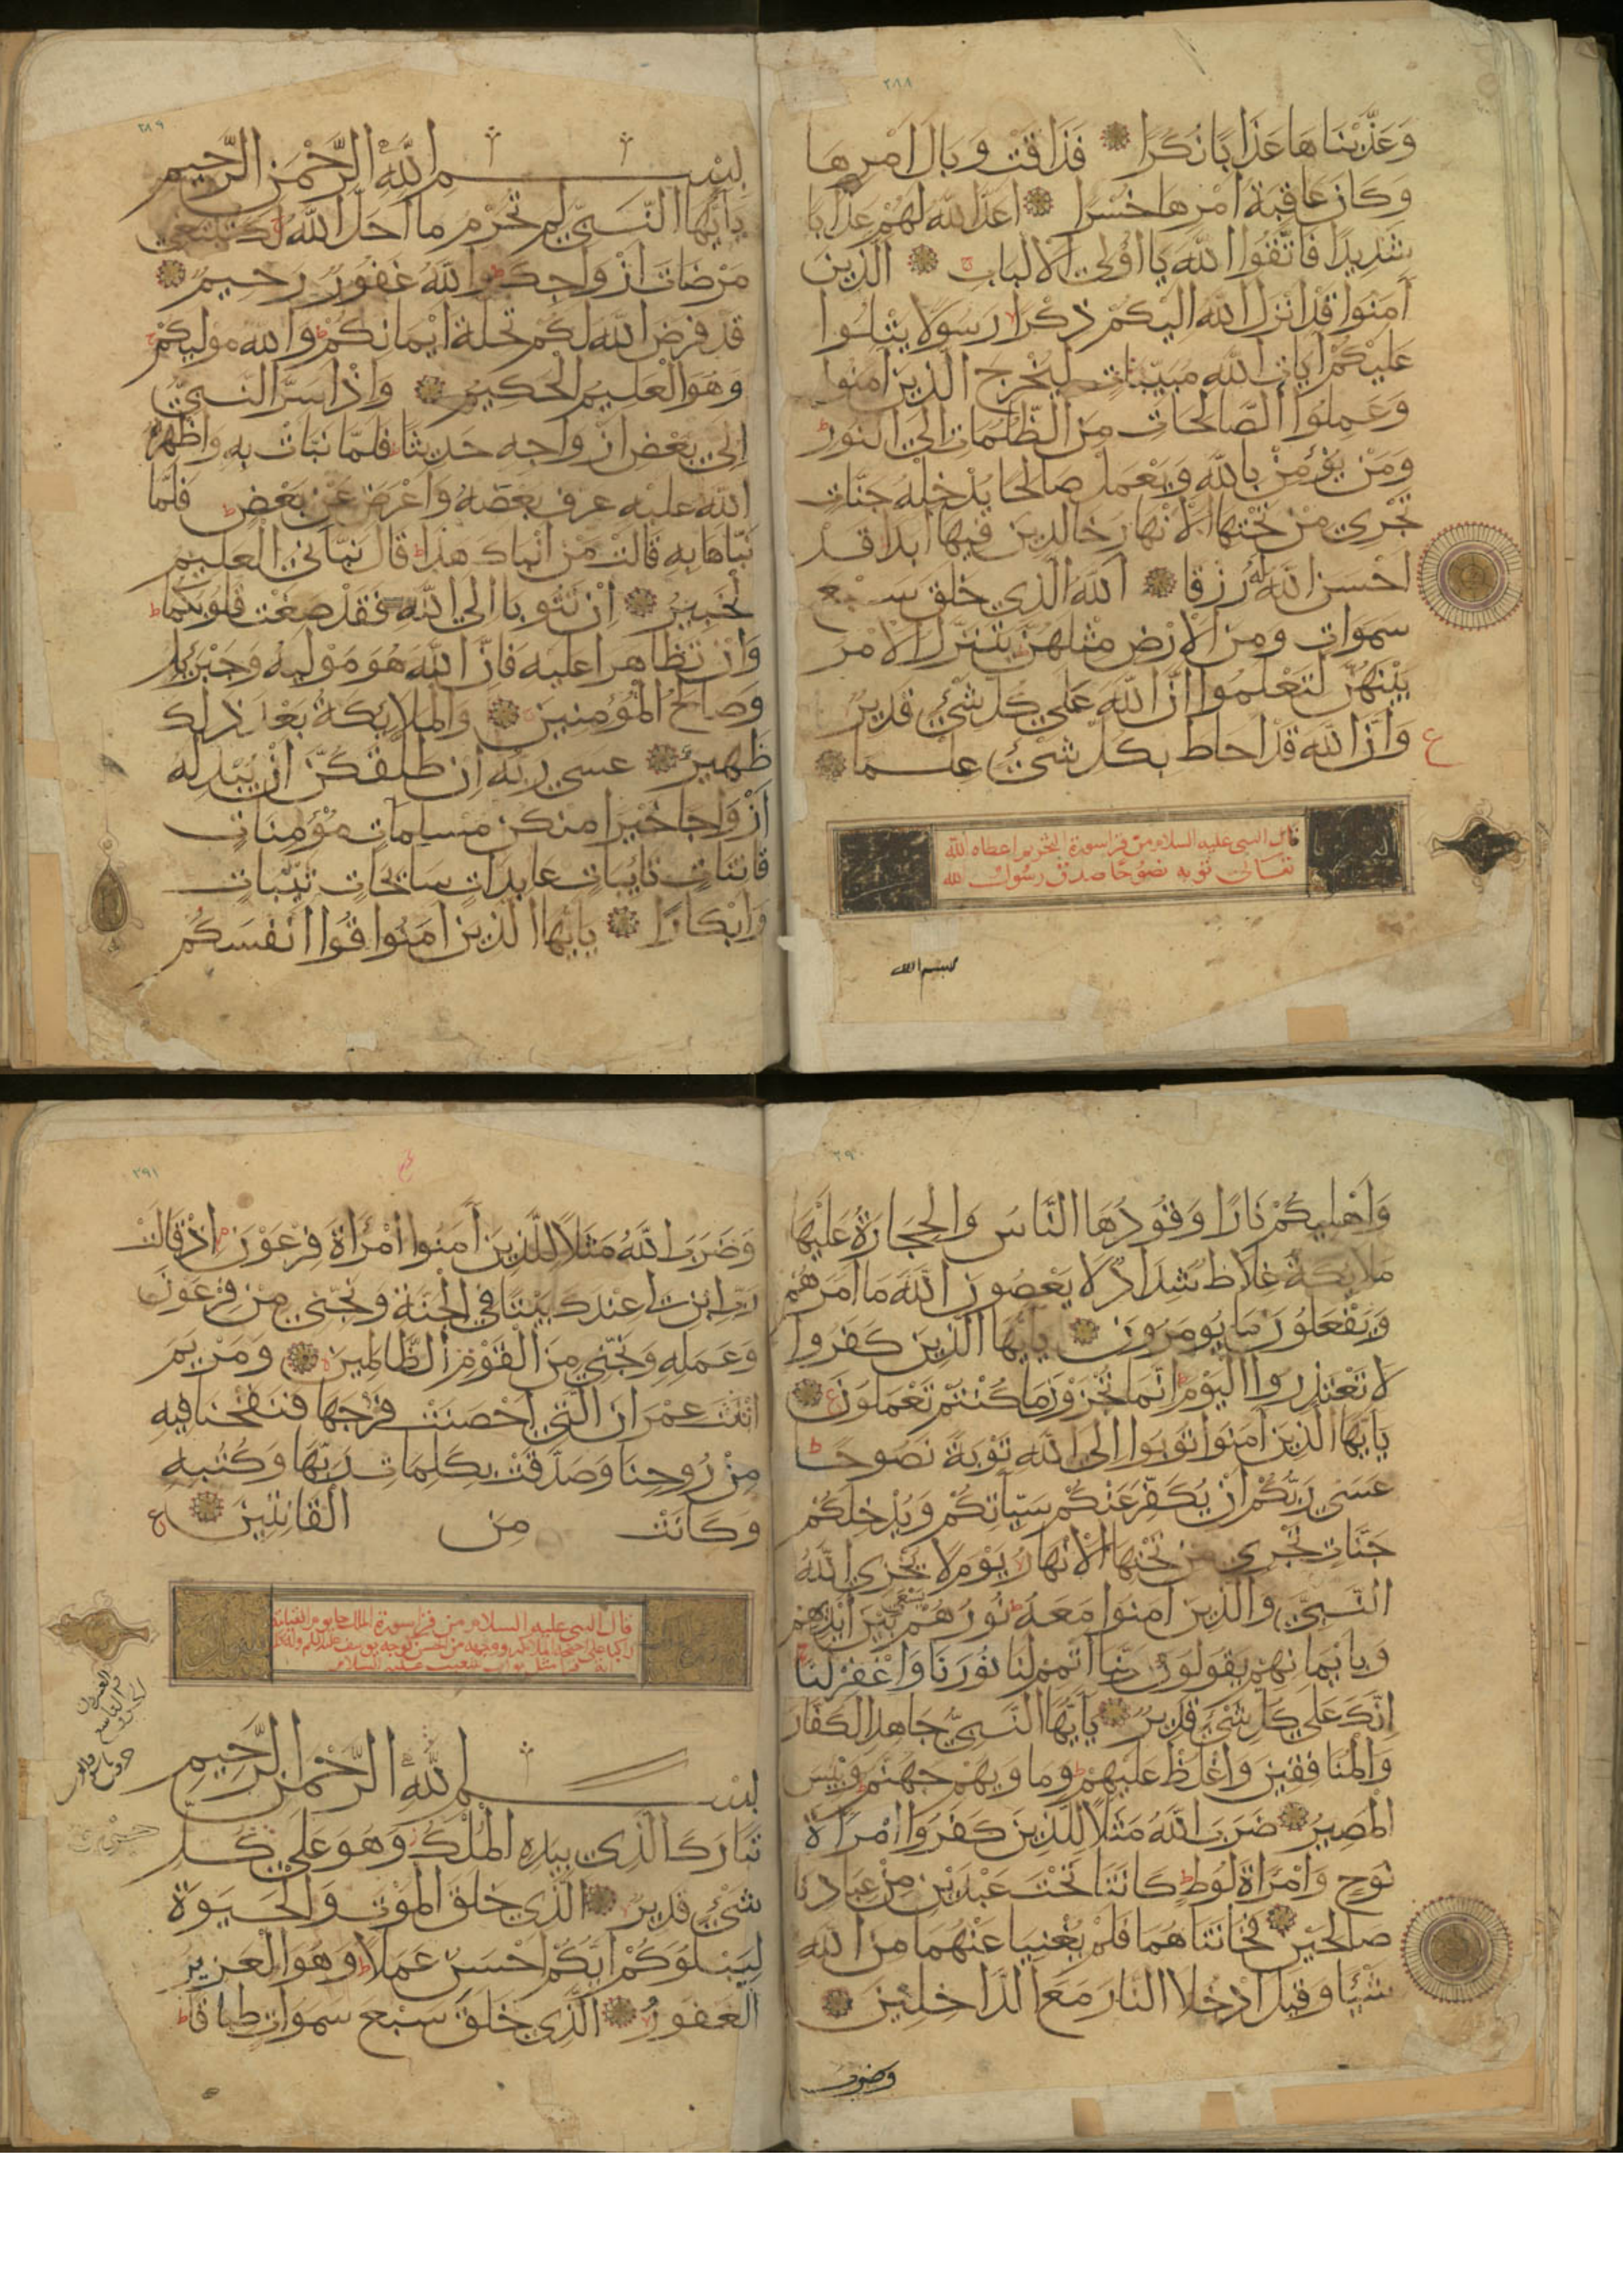 ٢٨٨
وَعَذَّبْنَاهَا عَذَابًا نُكْرًا فَذَاقَتْ وَبَالَ أَمْرِهَا
وَكَانَ عَاقِبَةُ أَمْرِهَا خُسْرًا أَعَدَّ اللهُ لَهُمْ عَذَابًا
شَدِيدًا فَاتَّقُوا اللهَ يَا اُولِي الْأَلْبَابِ الَّذِينَ
آمَنُوا قَدْ اَنْزَلَ اللهُ اِلَيْكُمْ ذِكْرًا رَسُولًا يَتْلُوا
عَلَيْكُمْ آيَاتِ اللهِ مُبَيِّنَاتٍ لِيُخْرِجَ الَّذِينَ آمَنُوا
وَعَمِلُوا الصَّالِحَاتِ مِنَ الظُّلُمَاتِ اِلَى النُّورِ
وَمَنْ يُؤْمِنْ بِاللهِ وَيَعْمَلْ صَالِحًا يُدْخِلْهُ جَنَّاتٍ
تَجْرِي مِنْ تَحْتِهَا الْأَنْهَارُ خَالِدِينَ فِيهَا اَبَدًا قَدْ
اَحْسَنَ اللهُ لَهُ رِزْقًا اللهُ الَّذِي خَلَقَ سَبْعَ
سَمَوَاتٍ وَمِنَ الْأَرْضِ مِثْلَهُنَّ يَتَنَزَّلُ الْأَمْرُ
بَيْنَهُنَّ لِتَعْلَمُوا اَنَّ اللهَ عَلَى كُلِّ شَيْءٍ قَدِيرٌ
وَاَنَّ اللهَ قَدْ اَحَاطَ بِكُلِّ شَيْءٍ عِلْمًا
ع
قال النبى عليه السلام من قرا سورة التحريم اعطاه الله
تعالى توبة نصوحا صدق رسول الله
بسم الله
٢٨٩
بِسْمِ اللهِ الرَّحْمٰنِ الرَّحِيمِ
يَاأَيُّهَا النَّبِيُّ لِمَ تُحَرِّمُ مَا اَحَلَّ اللهُ لَكَ تَبْتَغِي
مَرْضَاتَ اَزْوَاجِكَ وَاللهُ غَفُورٌ رَحِيمٌ
قَدْ فَرَضَ اللهُ لَكُمْ تَحِلَّةَ اَيْمَانِكُمْ وَاللهُ مَوْلَيكُمْ
وَهُوَ الْعَلِيمُ الْحَكِيمُ وَاِذْ اَسَرَّ النَّبِيُّ
اِلَى بَعْضِ اَزْوَاجِهِ حَدِيثًا فَلَمَّا نَبَّاَتْ بِهِ وَاَظْهَرَهُ
اللهُ عَلَيْهِ عَرَّفَ بَعْضَهُ وَاَعْرَضَ عَنْ بَعْضٍ فَلَمَّا
نَبَّاَهَا بِهِ قَالَتْ مَنْ اَنْبَاَكَ هٰذَا قَالَ نَبَّاَنِيَ الْعَلِيمُ
الْخَبِيرُ اِنْ تَتُوبَا اِلَى اللهِ فَقَدْ صَغَتْ قُلُوبُكُمَا
وَاِنْ تَظَاهَرَا عَلَيْهِ فَاِنَّ اللهَ هُوَ مَوْلَيهُ وَجِبْرِيلُ
وَصَالِحُ الْمُؤْمِنِينَ وَالْمَلَائِكَةُ بَعْدَ ذٰلِكَ
ظَهِيرٌ عَسَى رَبُّهُ اِنْ طَلَّقَكُنَّ اَنْ يُبْدِلَهُ
اَزْوَاجًا خَيْرًا مِنْكُنَّ مُسْلِمَاتٍ مُؤْمِنَاتٍ
قَانِتَاتٍ تَائِبَاتٍ عَابِدَاتٍ سَائِحَاتٍ ثَيِّبَاتٍ
وَاَبْكَارًا يَاأَيُّهَا الَّذِينَ آمَنُوا قُوا اَنْفُسَكُمْ
٢٩٠
وَاَهْلِيكُمْ نَارًا وَقُودُهَا النَّاسُ وَالْحِجَارَةُ عَلَيْهَا
مَلَائِكَةٌ غِلَاظٌ شِدَادٌ لَا يَعْصُونَ اللهَ مَا اَمَرَهُمْ
وَيَفْعَلُونَ مَا يُومَرُونَ يَاأَيُّهَا الَّذِينَ كَفَرُوا
لَا تَعْتَذِرُوا الْيَوْمَ اِنَّمَا تُجْزَوْنَ مَا كُنْتُمْ تَعْمَلُونَ
يَاأَيُّهَا الَّذِينَ آمَنُوا تُوبُوا اِلَى اللهِ تَوْبَةً نَصُوحًا
عَسَى رَبُّكُمْ اَنْ يُكَفِّرَ عَنْكُمْ سَيِّاٰتِكُمْ وَيُدْخِلَكُمْ
جَنَّاتٍ تَجْرِي مِنْ تَحْتِهَا الْأَنْهَارُ يَوْمَ لَا يُخْزِي اللهُ
النَّبِيَّ وَالَّذِينَ آمَنُوا مَعَهُ نُورُهُمْ يَسْعَى بَيْنَ اَيْدِيهِمْ
وَبِاَيْمَانِهِمْ يَقُولُونَ رَبَّنَا اَتْمِمْ لَنَا نُورَنَا وَاغْفِرْ لَنَا
اِنَّكَ عَلَى كُلِّ شَيْءٍ قَدِيرٌ يَاأَيُّهَا النَّبِيُّ جَاهِدِ الْكُفَّارَ
وَالْمُنَافِقِينَ وَاغْلُظْ عَلَيْهِمْ وَمَاوَيهُمْ جَهَنَّمُ وَبِئْسَ
الْمَصِيرُ ضَرَبَ اللهُ مَثَلًا لِلَّذِينَ كَفَرُوا امْرَاَةَ
نُوحٍ وَامْرَاَةَ لُوطٍ كَانَتَا تَحْتَ عَبْدَيْنِ مِنْ عِبَادِنَا
صَالِحَيْنِ فَخَانَتَاهُمَا فَلَمْ يُغْنِيَا عَنْهُمَا مِنَ اللهِ
شَيْئًا وَقِيلَ ادْخُلَا النَّارَ مَعَ الدَّاخِلِينَ
وضرب
٢٩١
وَضَرَبَ اللهُ مَثَلًا لِلَّذِينَ آمَنُوا امْرَاَةَ فِرْعَوْنَ اِذْ قَالَتْ
رَبِّ ابْنِ لِي عِنْدَكَ بَيْتًا فِي الْجَنَّةِ وَنَجِّنِي مِنْ فِرْعَوْنَ
وَعَمَلِهِ وَنَجِّنِي مِنَ الْقَوْمِ الظَّالِمِينَ وَمَرْيَمَ
ابْنَتَ عِمْرَانَ الَّتِي اَحْصَنَتْ فَرْجَهَا فَنَفَخْنَا فِيهِ
مِنْ رُوحِنَا وَصَدَّقَتْ بِكَلِمَاتِ رَبِّهَا وَكُتُبِهِ
وَكَانَتْ مِنَ الْقَانِتِينَ
ع
قال النبى عليه السلام من قرا سورة الملك جا يوم القيامة
بِسْمِ اللهِ الرَّحْمٰنِ الرَّحِيمِ
تَبَارَكَ الَّذِي بِيَدِهِ الْمُلْكُ وَهُوَ عَلَى كُلِّ
شَيْءٍ قَدِيرٌ الَّذِي خَلَقَ الْمَوْتَ وَالْحَيَوةَ
لِيَبْلُوَكُمْ اَيُّكُمْ اَحْسَنُ عَمَلًا وَهُوَ الْعَزِيزُ
الْغَفُورُ الَّذِي خَلَقَ سَبْعَ سَمَوَاتٍ طِبَاقًا